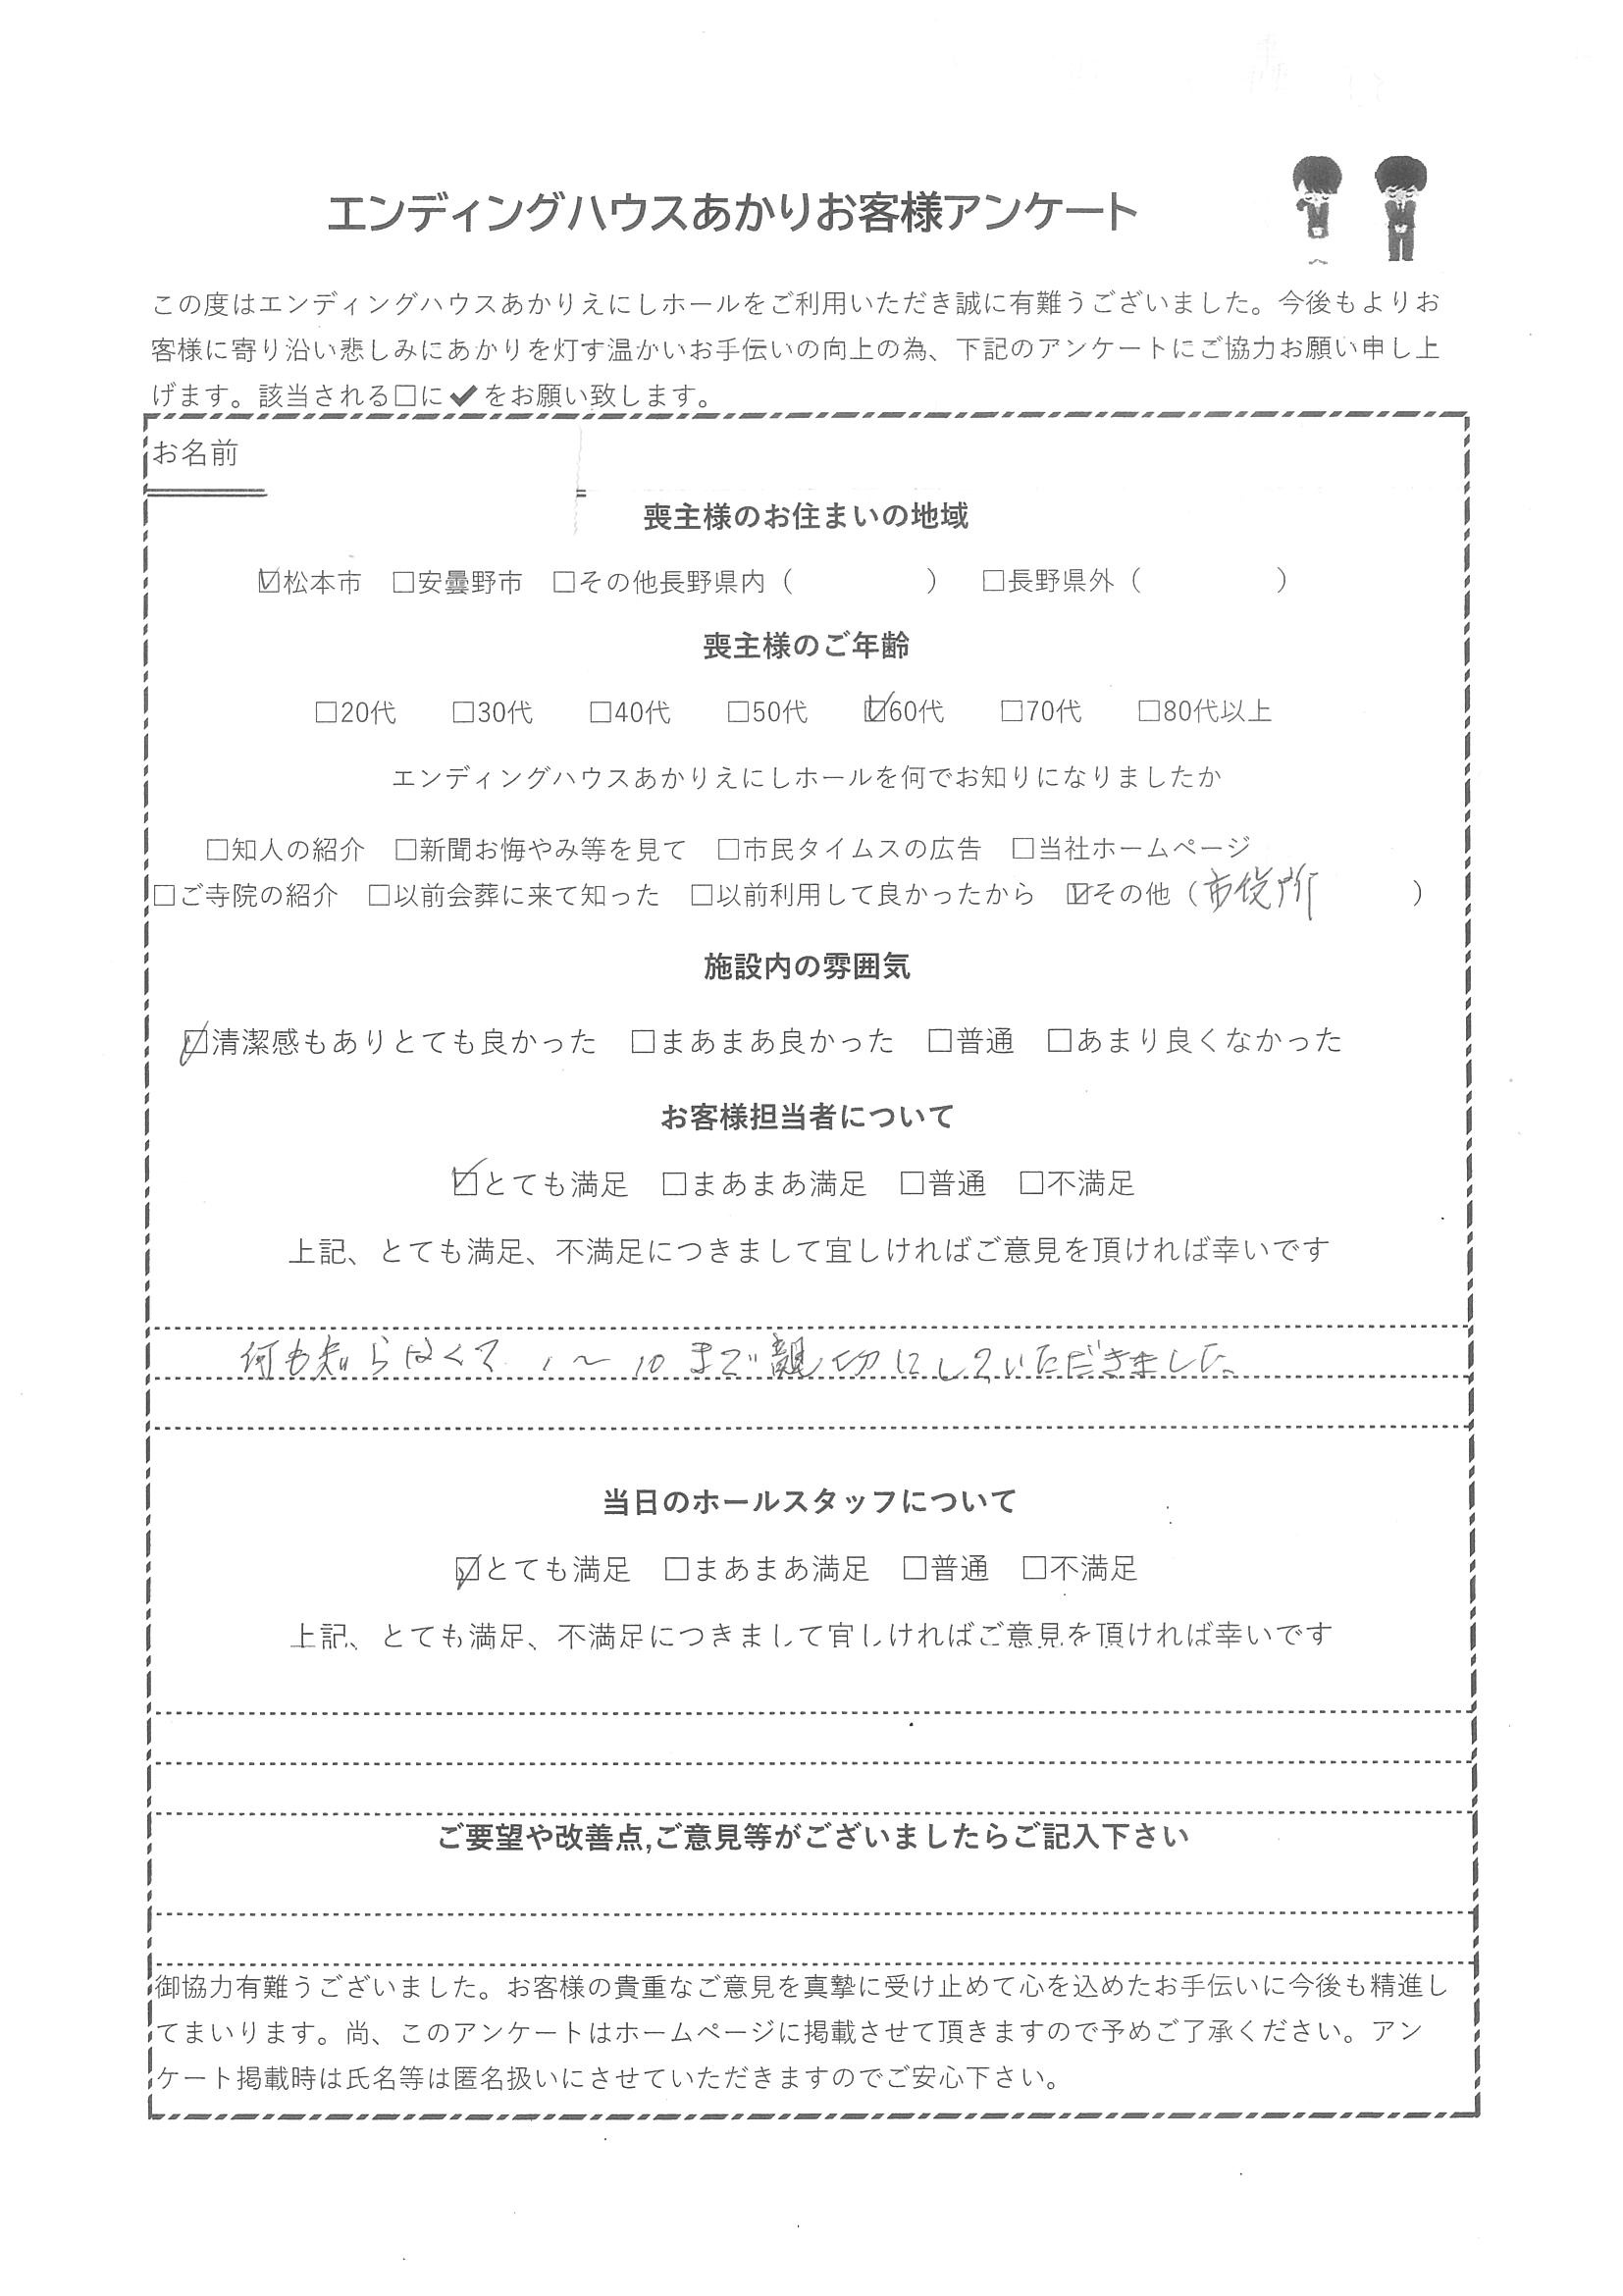 エンディングハウスあかりお客様アンケート
この度はエンディングハウスあかりえにしホールをご利用いただき誠に有難うございました。今後もよりお
客様に寄り沿い悲しみにあかりを灯す温かいお手伝いの向上の為、下記のアンケートにご協力お願い申し上
げます。該当される□に✔をお願い致します。
お名前
喪主様のお住まいの地域
☑松本市 □安曇野市 □その他長野県内（ ） □長野県外（ ）
喪主様のご年齢
□20代 □30代 □40代 □50代 ☑60代 □70代 □80代以上
エンディングハウスあかりえにしホールを何でお知りになりましたか
□知人の紹介 □新聞お悔やみ等を見て □市民タイムスの広告 □当社ホームページ
□ご寺院の紹介 □以前会葬に来て知った □以前利用して良かったから ☑その他（市役所 ）
施設内の雰囲気
☑清潔感もありとても良かった □まあまあ良かった □普通 □あまり良くなかった
お客様担当者について
☑とても満足 □まあまあ満足 □普通 □不満足
上記、とても満足、不満足につきまして宜しければご意見を頂ければ幸いです
何も知らなくて 1～10まで親切にしていただきました。
当日のホールスタッフについて
☑とても満足 □まあまあ満足 □普通 □不満足
上記、とても満足、不満足につきまして宜しければご意見を頂ければ幸いです
ご要望や改善点,ご意見等がございましたらご記入下さい
御協力有難うございました。お客様の貴重なご意見を真摯に受け止めて心を込めたお手伝いに今後も精進し
てまいります。尚、このアンケートはホームページに掲載させて頂きますので予めご了承ください。アン
ケート掲載時は氏名等は匿名扱いにさせていただきますのでご安心下さい。